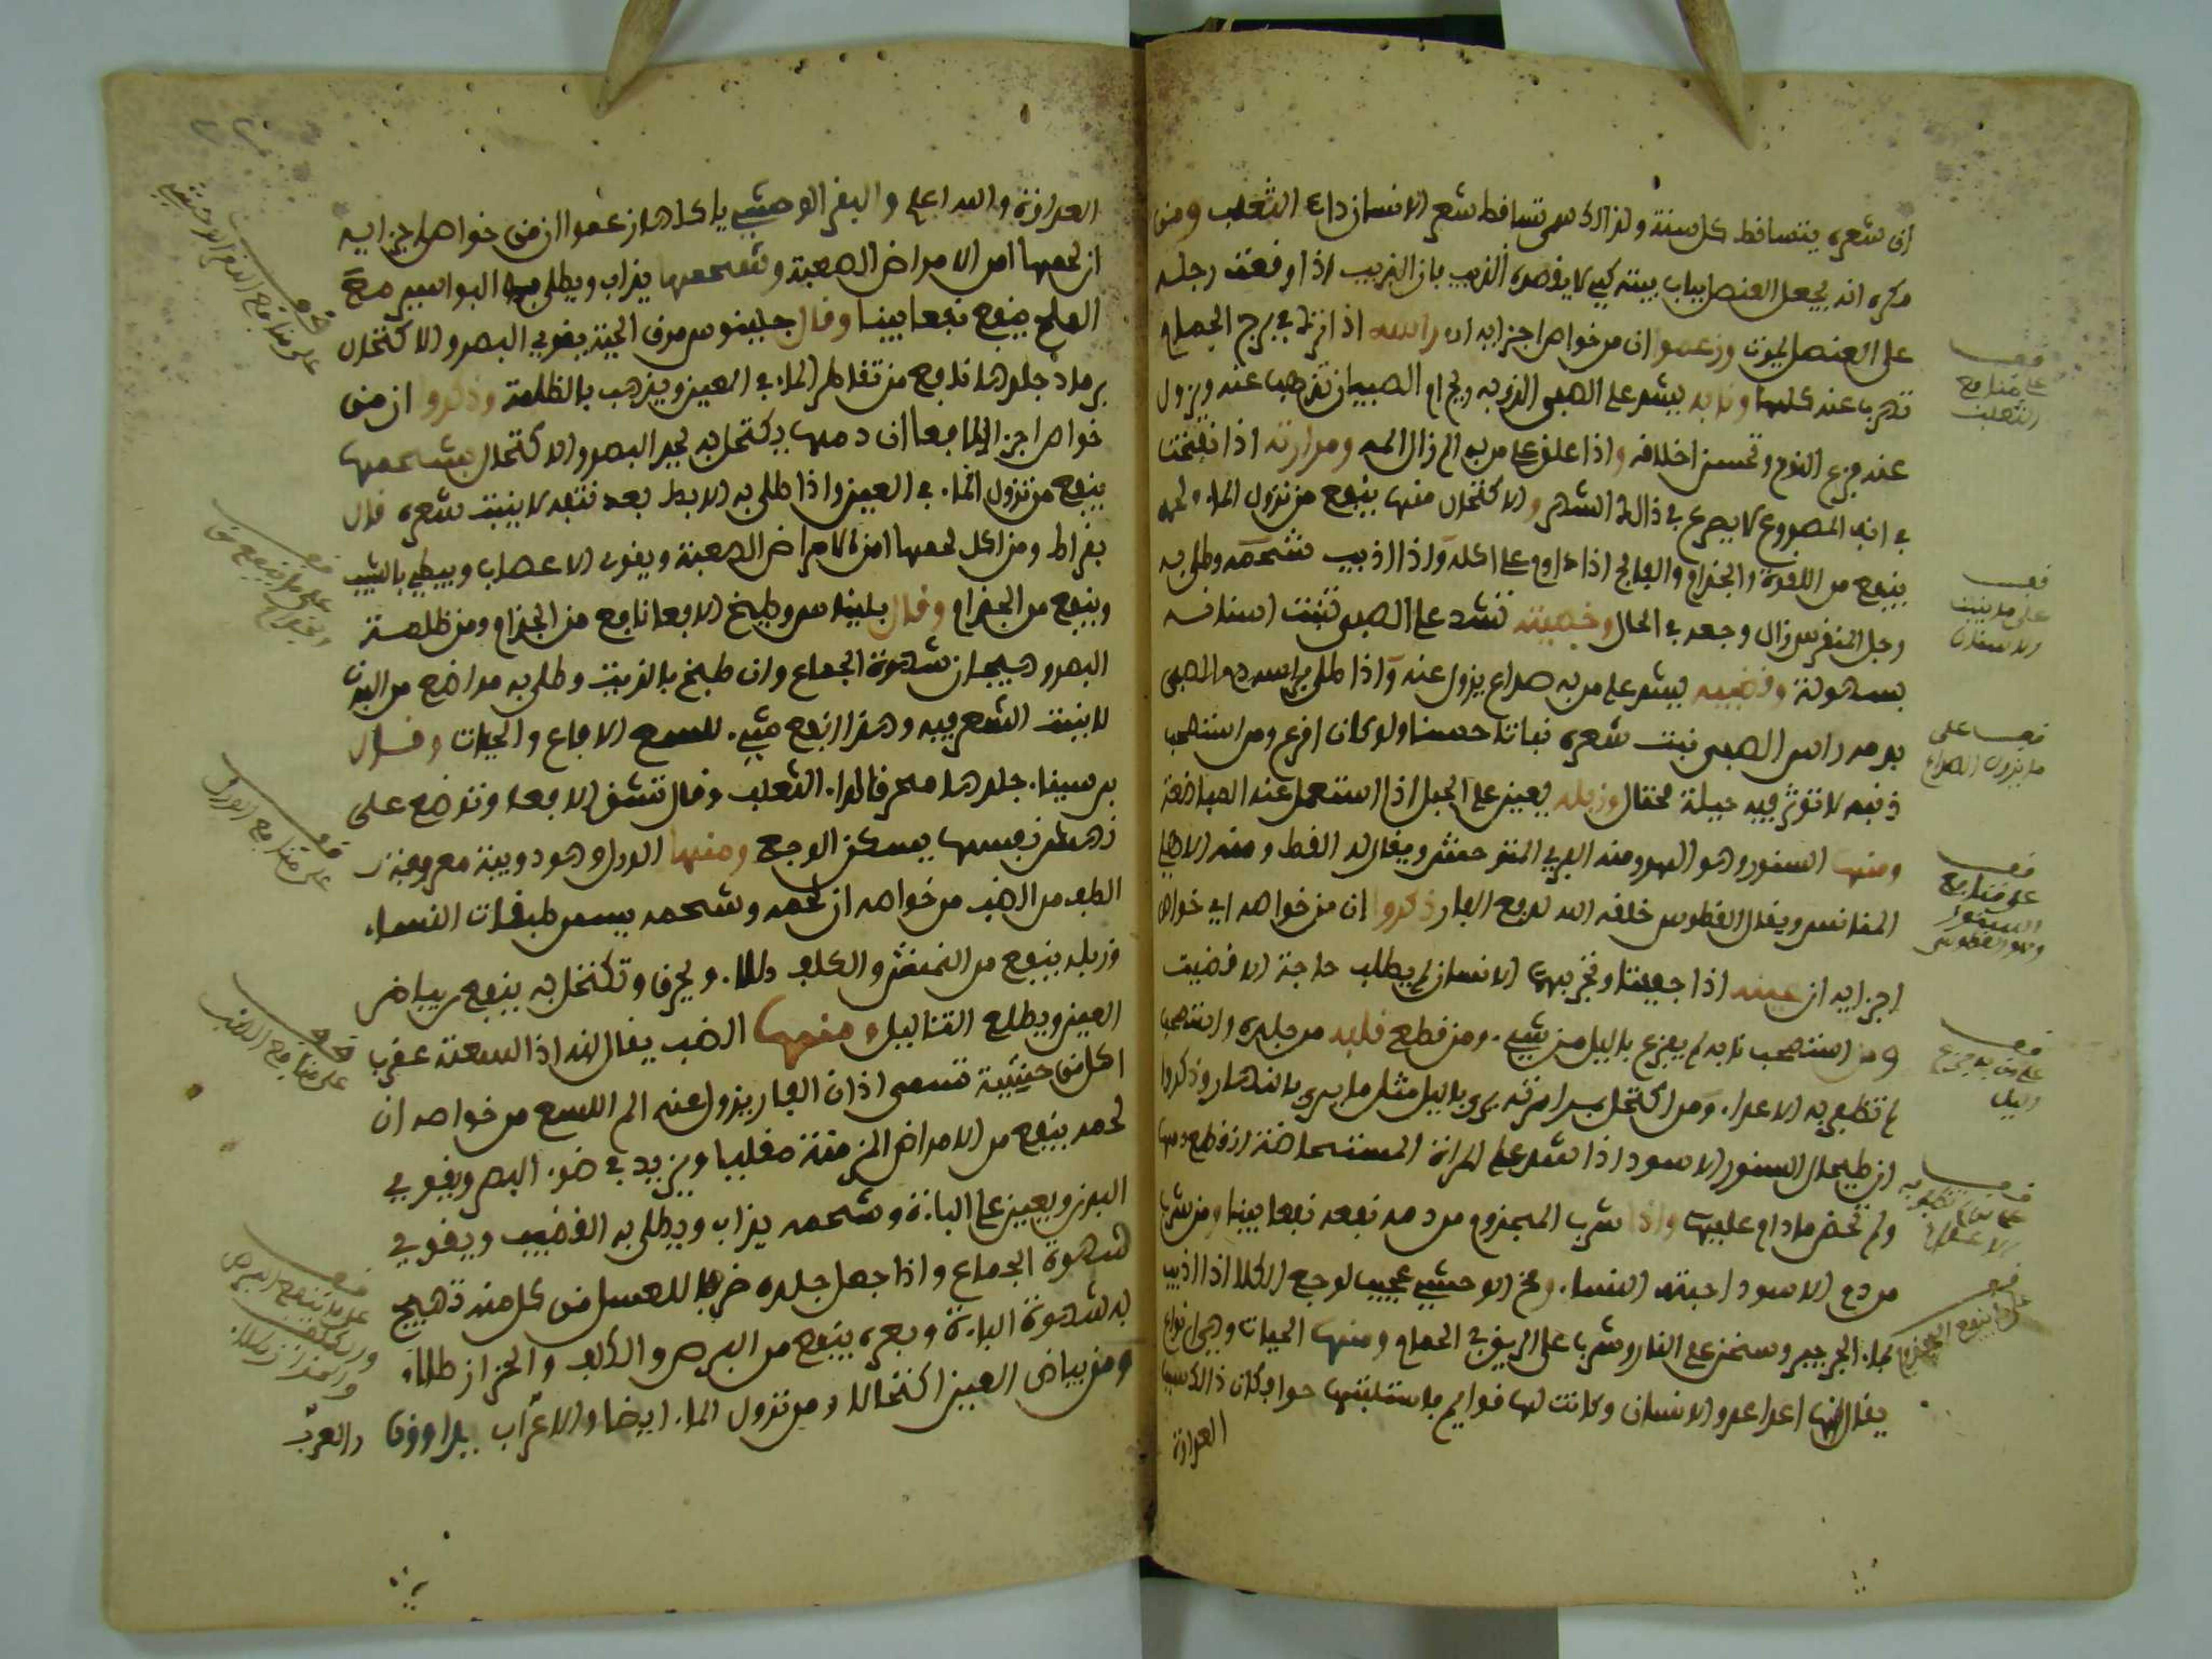 ان شعره يتساقط كل سنة ولذالك سمى تساقط شعر الانسان داء الثعلب ومن
مكره انه يجعل العنصل بباب بيته كي لا يقصده الذيب بان الذيب اذا وقعت رجله
على العنصل يموت وزعموا ان من خواص اجزايه ان راسه اذا ترك في برج الحمام
تهرب عنه كلها ونابه يشد على الصبى الذي به ريح ام الصبيان تذهب عنه ويزول
عنه فزع النوم وتحسن اخلافه واذا علق على من به الم زال المه ومرارته اذا نفخت
في انف المصروع لا يصرع في ذالك الشهر والاكتحال منها ينفع من نزول الماء ولحمه
ينفع من اللقوة والجذام والفالج اذا داوم على اكله واذا اذيب شحمه وطلى به
رجل المنقرس زال وجعه في الحال وخصيته تشد على الصبى تنبت اسنانه
بسهولة وقضيبه يشد على من به صداع يزول عنه واذا طلى براسه دم الصبى
بدمه راس الصبى نبت شعره نباتا حسنا ولو كان اقرع ومن استصحب
ذنبه لا تؤثر فيه حيلة محتال وزبله يعين على الحبل اذا استعمل عند المباضعة
ومنها السنور وهو الهر ومنه البري المتوحش ويقال له القط ومنه الاهلي
المتانس ويقال القطوس خلقه الله لدفع الفار ذكروا ان من خواصه اي خواص
اجزايه ان عينه اذا جففتا وتبخر بهما الانسان لم يطلب حاجة الا قضيت
ومن استصحب نابه لم يفزع بالليل من شيء ومن قطع قلبه من جلده واستصحب
لم تظفر به الاعداء ومن اكتحل بمرارته يرى بالليل مثل ما يرى بالنهار وذكروا
ان طحال السنور الاسود اذا شد على المراة المستحاضة انقطع دمها
ولم تحض مادام عليها واذا شرب المجذوم من دمه نفعه نفعا بينا ومن شرب
من دم الاسود احبته النساء ومخ الوحشي عجيب لوجع الكلا اذا اذيب
بماء الجرجير وسخن على النار وشرب على الريق في الحمام ومنها الحيات وهي انواع
يقال انها اعدا عدو الانسان وكانت لها قوايم فاستلبتها حوا فكان ذالك سبب
العداوة
قف
على منافع
الثعلب
قف
على ما ينبت
الاسنان
قف على
ما يزول الصداع
قف
على منافع
السنور
وهو القطوس
قف
على من به فزع
الليل
قف
على ما ينفع المجذوم
العداوة والسداعلى والبقر الوحشي ياكلها زعموا ان من خواص اجزايه
ان لحمها امن الامراض الصعبة وشحمها يذاب ويطلى به البواسير مع
الملح ينفع نفعا بينا وقال جلينوس مرق الحية يقوي البصر والاكتحال
برماد جلدها نافع من تقاطر الماء في العين ويذهب بالظلمة وذكروا ان من
خواص اجزاء الافعا ان دمها يكتحل به يحد البصر والاكتحال بشحمها
ينفع من نزول الماء في العين واذا طلى به الابط بعد نتفه لا ينبت شعره قال
بقراط ومن اكل لحمها امن الامراض الصعبة ويقوى الاعصاب ويبطي بالشيب
وينفع من الجذام وقال بليناس وطبيخ الافعا نافع من الجذام ومن ظلمة
البصر وهيجان شهوة الجماع وان طبخ بالزيت وطلى به مواضع من البدن
لا ينبت الشعر فيه وهذا انفع شيء للسع الافاع والحيات وقال
بن سينا جلدها محرقا لداء الثعلب وقال تشق الافعا وتوضع على
نهش نفسها يسكن الوجع ومنها الورل وهو دويبة معروفة
الطف من الضب من خواصه ان لحمه وشحمه يسمن طبقات النساء
وزبله ينفع من النمش والكلف طلاء ويحرق وتكتحل به ينفع بياض
العين ويطلع الثتاليل ومنها الضب يقال انه اذا لسعته عقرب
اكل من حشيشة تسمى اذان الفار يزول عنه الم اللسع من خواصه ان
لحمه ينفع من الامراض المزمنة مغليا ويزيد في ضوء البصر ويقوي
البدن ويعين على الباءة وشحمه يذاب ويطلى به القضيب ويقوي
شهوة الجماع واذا جعل جلده ظرفا للعسل من اكل منه تهيج
له شهوة الباءة وبعره ينفع من البرص والكلف والحزاز طلاء
ومن بياض العين اكتحالا ومن نزول الماء ايضا والاعراب يداوون
والعرب
قف
على منافع البقر الوحشي
قف
على منافع الورل
قف
على منافع الضب
قف
على ما ينفع البرص
والكلف